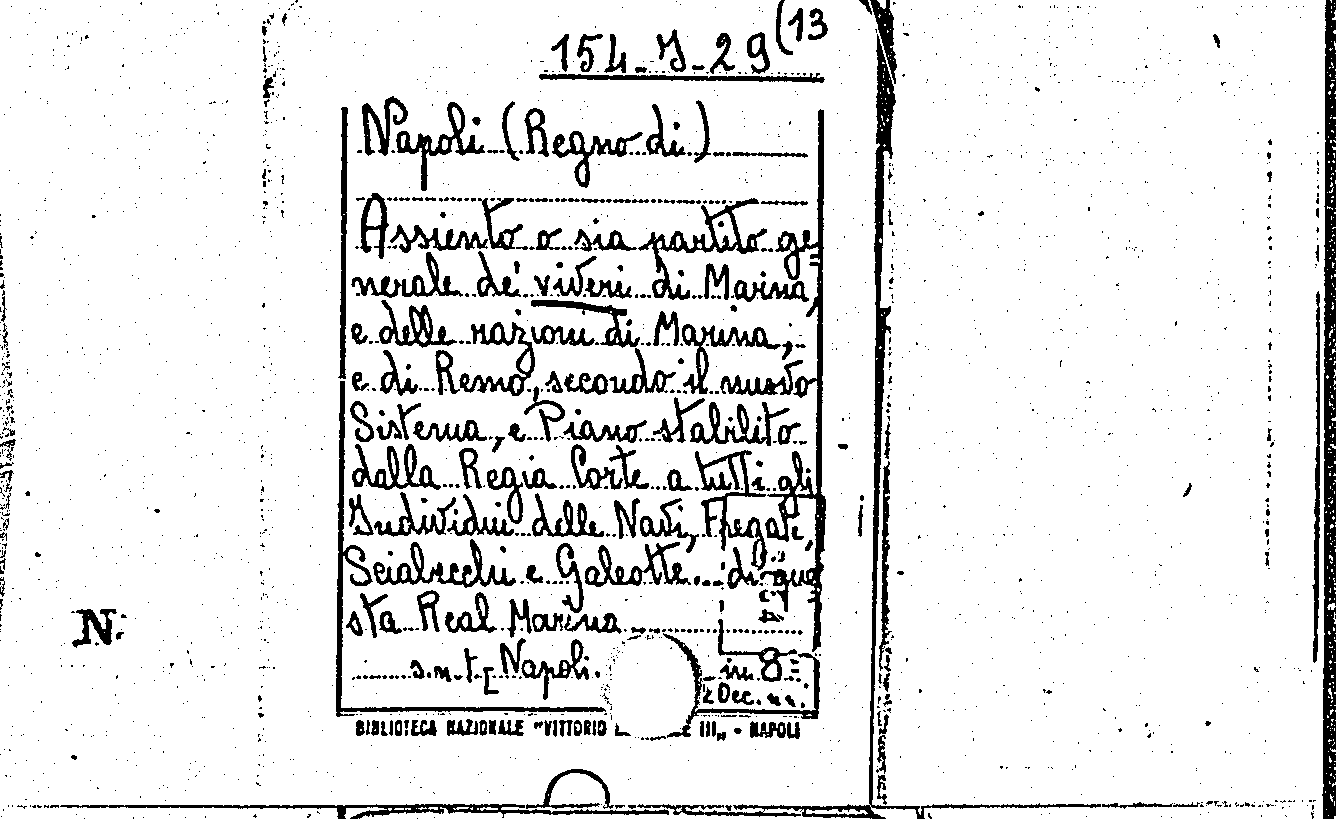 154-J-29(13
Napoli (Regno di)
Assiento o sia partito ge=
nerale de' viveri di Marina,
e delle razioni di Marina,
e di Remo, secondo il nuovo
Sistema, e Piano stabilito
dalla Regia Corte a tutti gli
Individui delle Navi, Fregate,
Scialecchi e Galeotte... di que=
sta Real Marina
s.n.t. [Napoli.
in 8º
Dec.
BIBLIOTECA NAZIONALE "VITTORIO E III„ - NAPOLI
N.